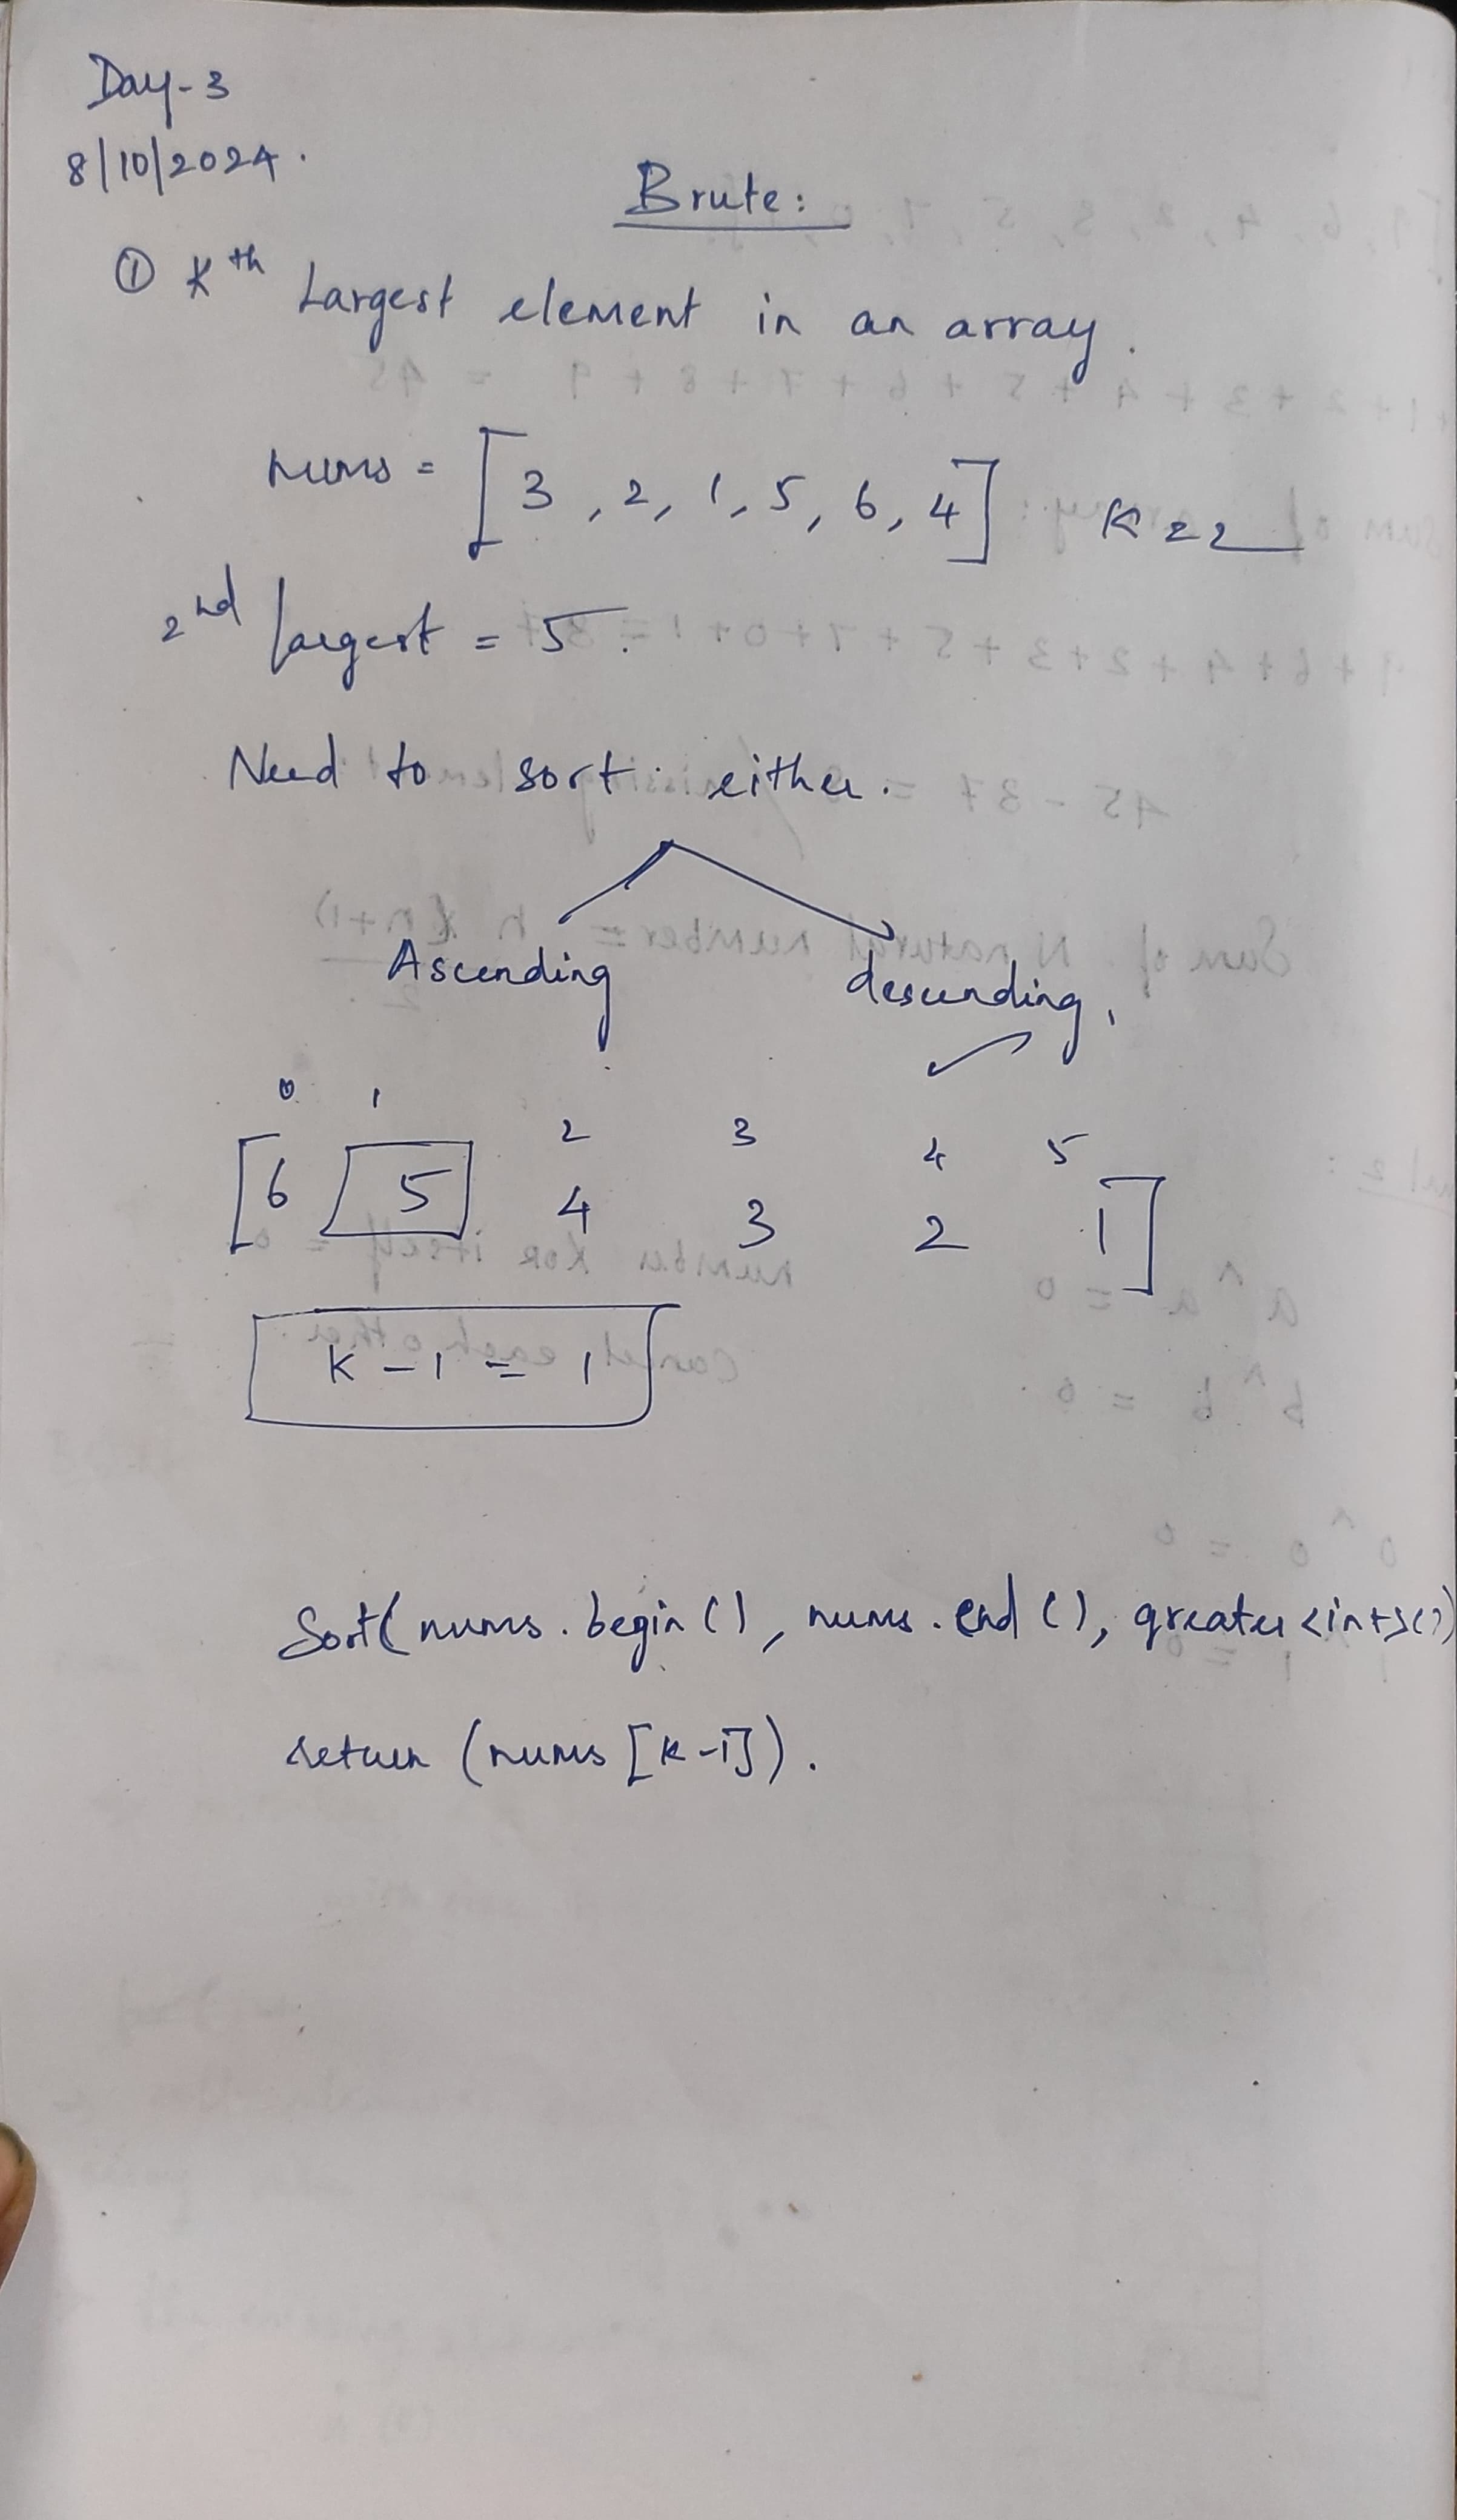 Day-3
8/10/2024.
Brute:
① Kth Largest element in an array.
nums = [3, 2, 1, 5, 6, 4] K=2
2nd largest = 5.
Need to sort either.
Ascending descending,
0 1 2 3 4 5
[6 5 4 3 2 1]
K-1 = 1
Sort(nums.begin(), nums.end(), greater<int>())
return (nums[K-1]).